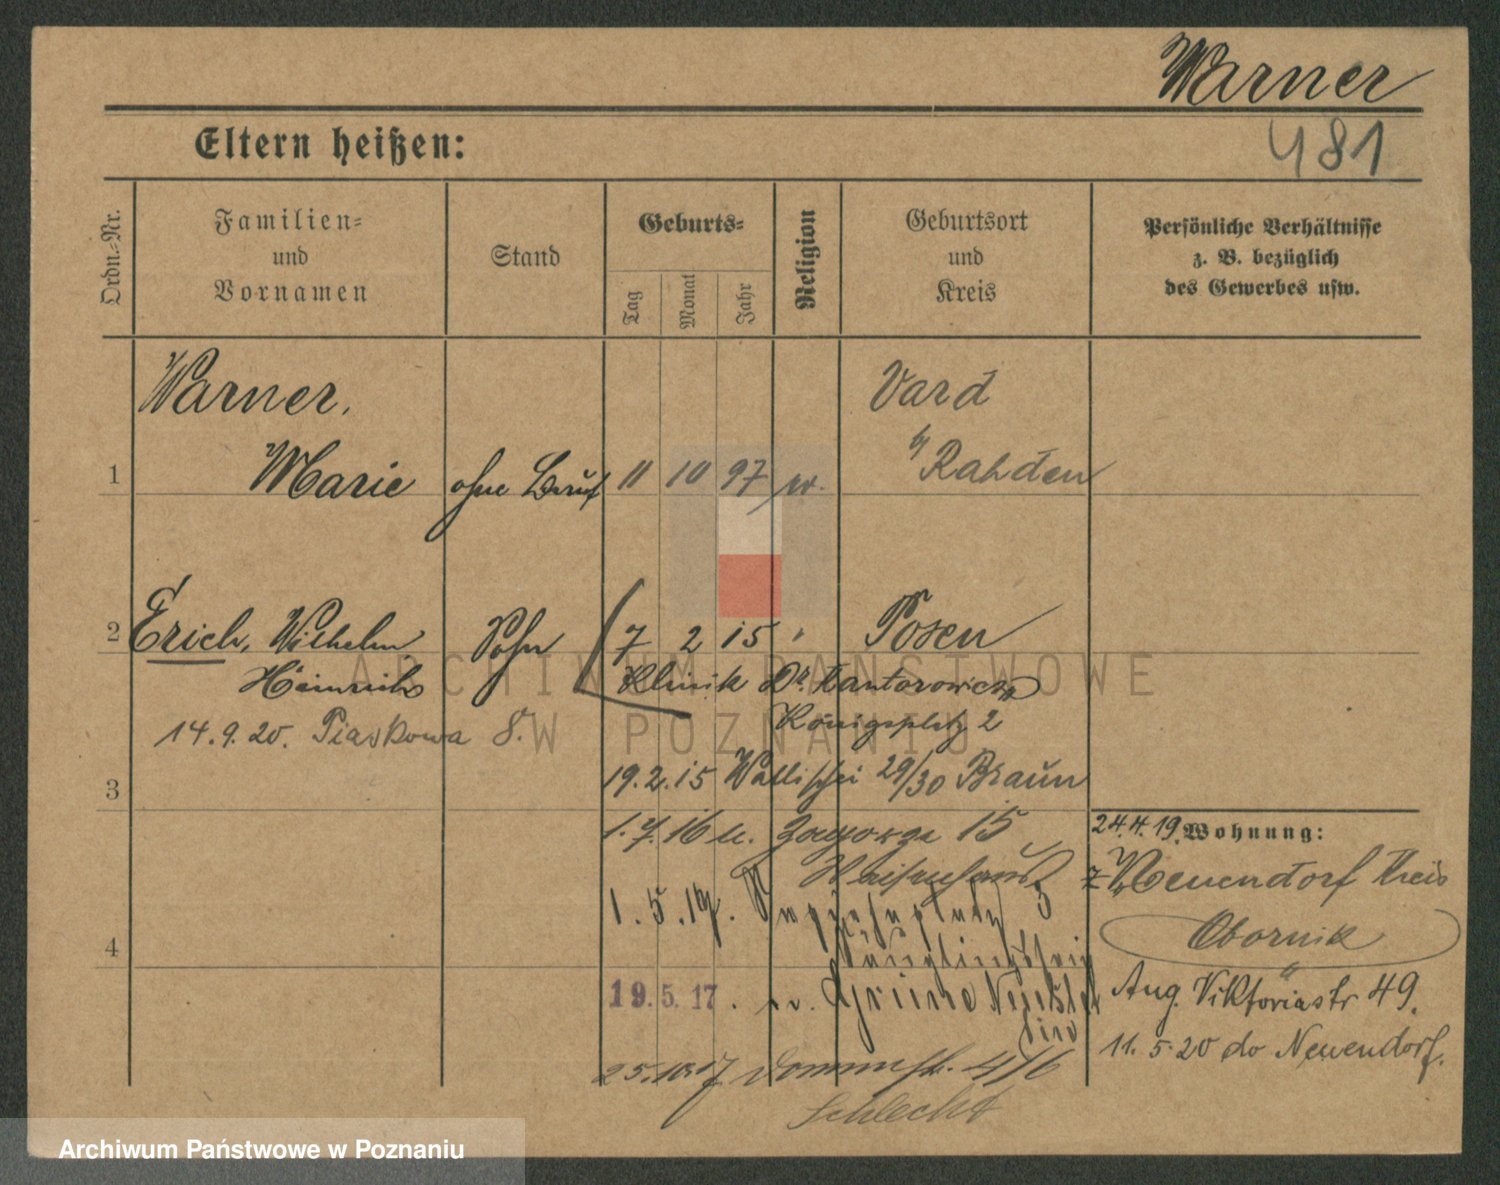 Warner
481
Eltern heißen:
Ordn.-Nr.
Familien-
und
Vornamen
Stand
Geburts-
Tag
Monat
Jahr
Religion
Geburtsort
und
Kreis
Persönliche Verhältnisse
z. B. bezüglich
des Gewerbes usw.
Warner,
Vard
1 Marie ohne Beruf 11 10 97 Rahden
2 Erich, Wilhelm Sohn 7 2 15 " Posen
Heinrich Klinik Dr. Kantorowicz
Königsplatz 2
14.9.20. Piaskowa 8.
3 19.2.15 Wallischei 29/30 Braun
1.7.16 Zagorze 15
24.4.19. Wohnung:
Waisenhaus
z. Neuendorf Kreis
1.5.17. Sapiehaplatz 3
Obornik
4
Säuglingsheim
19.5.17.
Aug. Viktoriastr 49.
25.10.17 Dommstr. 4/6
11.5.20 do Neuendorf.
Schlecht
ARCHIWUM PAŃSTWOWE
W POZNANIU
Archiwum Państwowe w Poznaniu